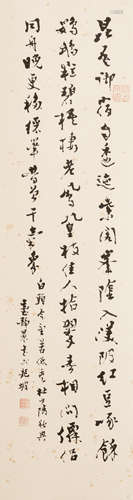 昆吾御宿自逶迤紫閣峯陰入渼陂紅豆啄餘
鸚鵡粒碧梧棲老鳳凰枝佳人拾翠春相問僊侶
同舟晚更移綵筆昔曾干氣象白頭今望苦低垂 杜陵秋興
靜農書於龍坡